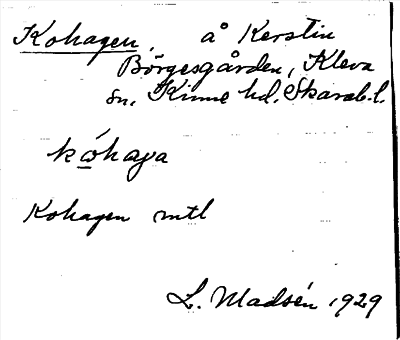 Kohagen, å Kerstin
Börgesgården, Kleva
sn, Kinne hd. Skarab. l.
kóhaga
Kohagen mtl
L. Madsén 1929